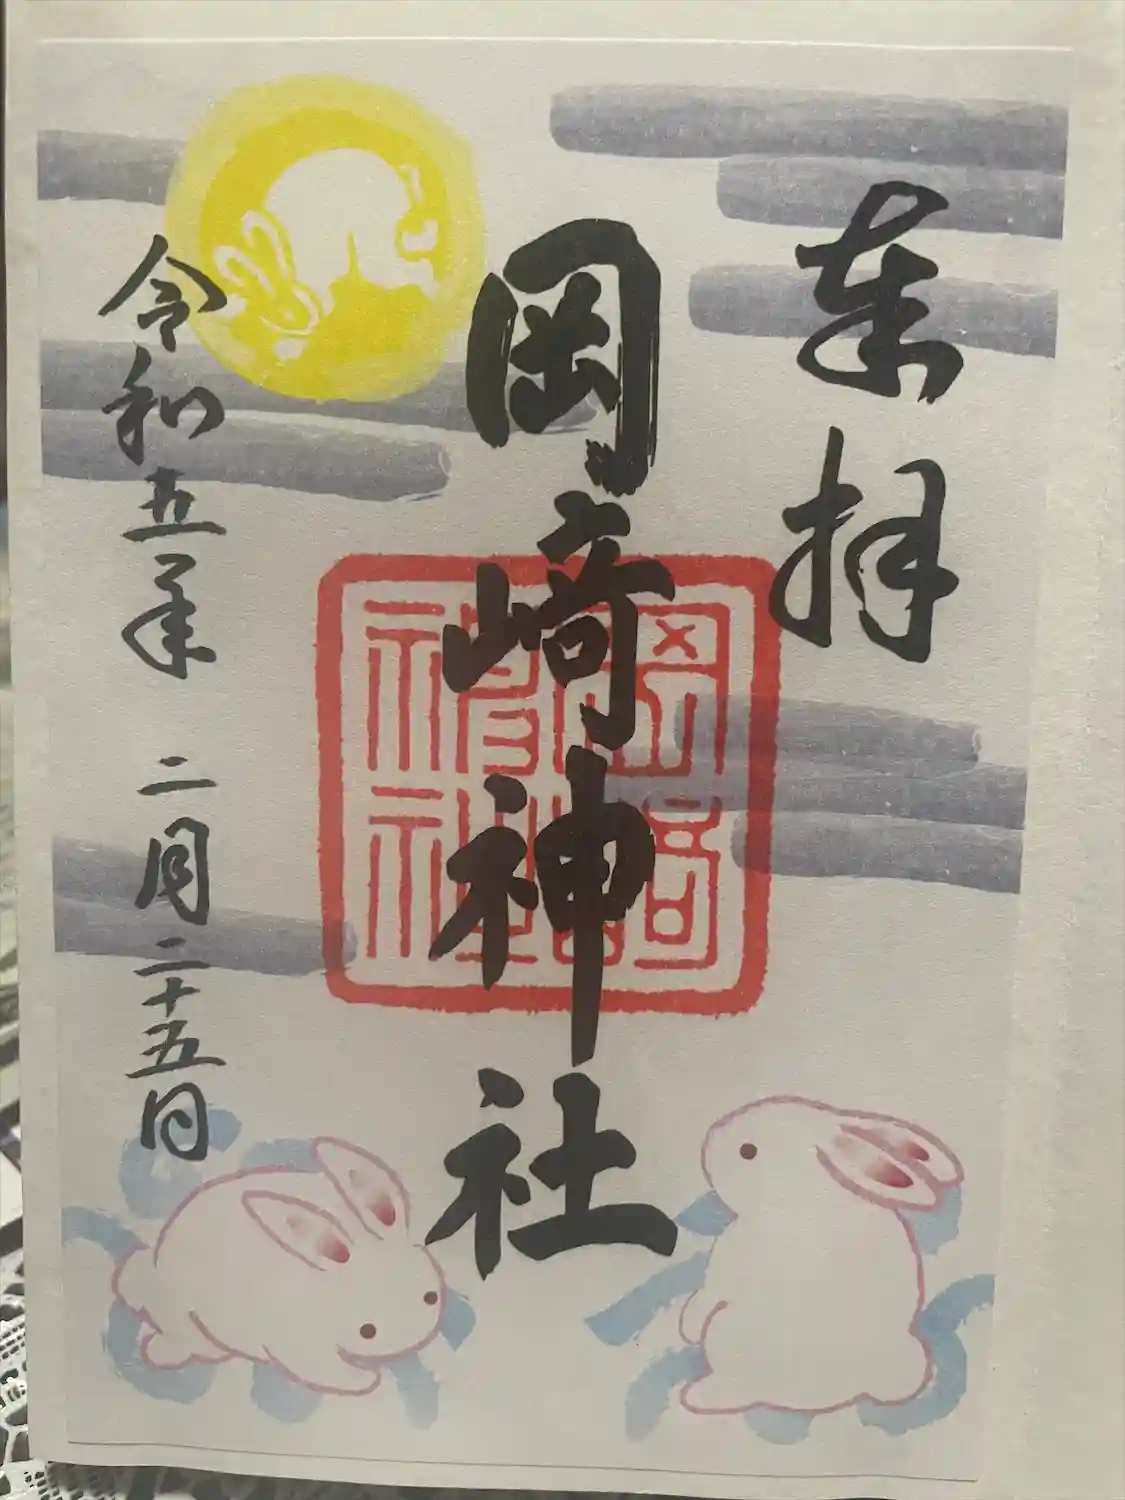 奉拝
岡崎神社
令和五年 二月二十五日